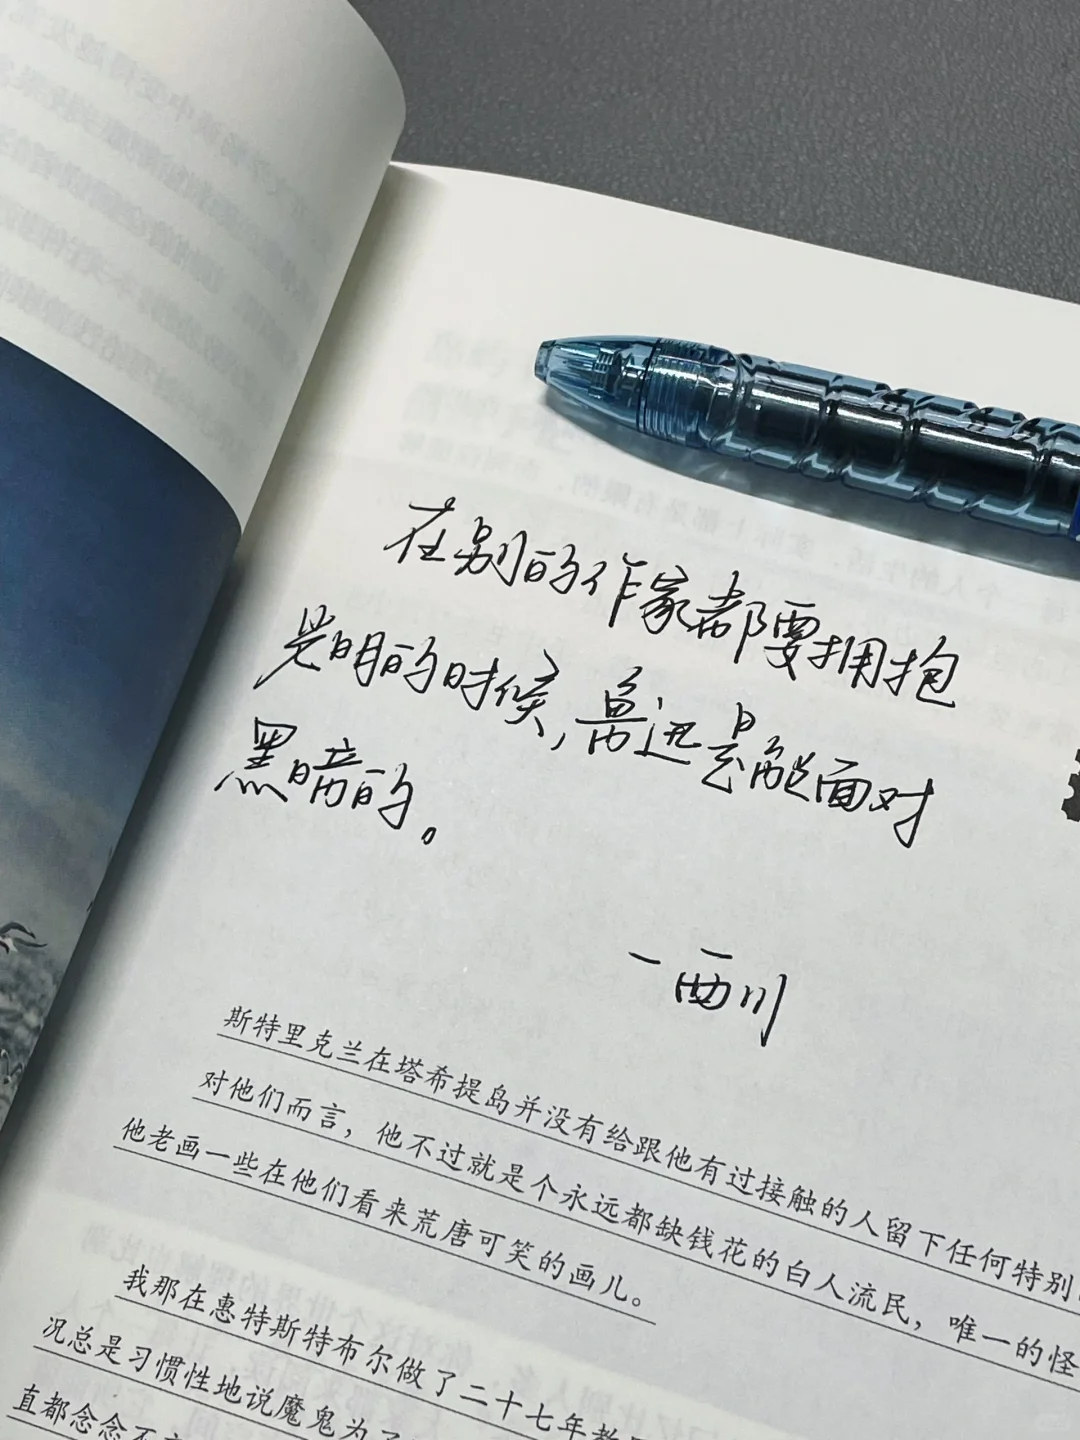 在别的作家都要拥抱
光明的时候,鲁迅是能面对
黑暗的。
一西川
斯特里克兰在塔希提岛并没有给跟他有过接触的人留下任何特别
对他们而言，他不过就是个永远都缺钱花的白人流民，唯一的怪
他老画一些在他们看来荒唐可笑的画儿。
我那在惠特斯特布尔做了二十七年教
况总是习惯性地说魔鬼为了
直都念念不